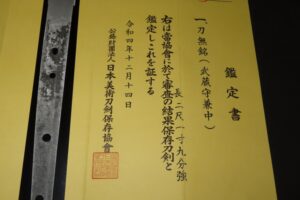 鑑定書
一、刀 無銘(武蔵守兼中)
長 二尺一寸九分強
右は當協會に於て審査の結果保存刀剣と
鑑定しこれを証する
令和四年十二月十四日
公益財団法人 日本美術刀剣保存協會